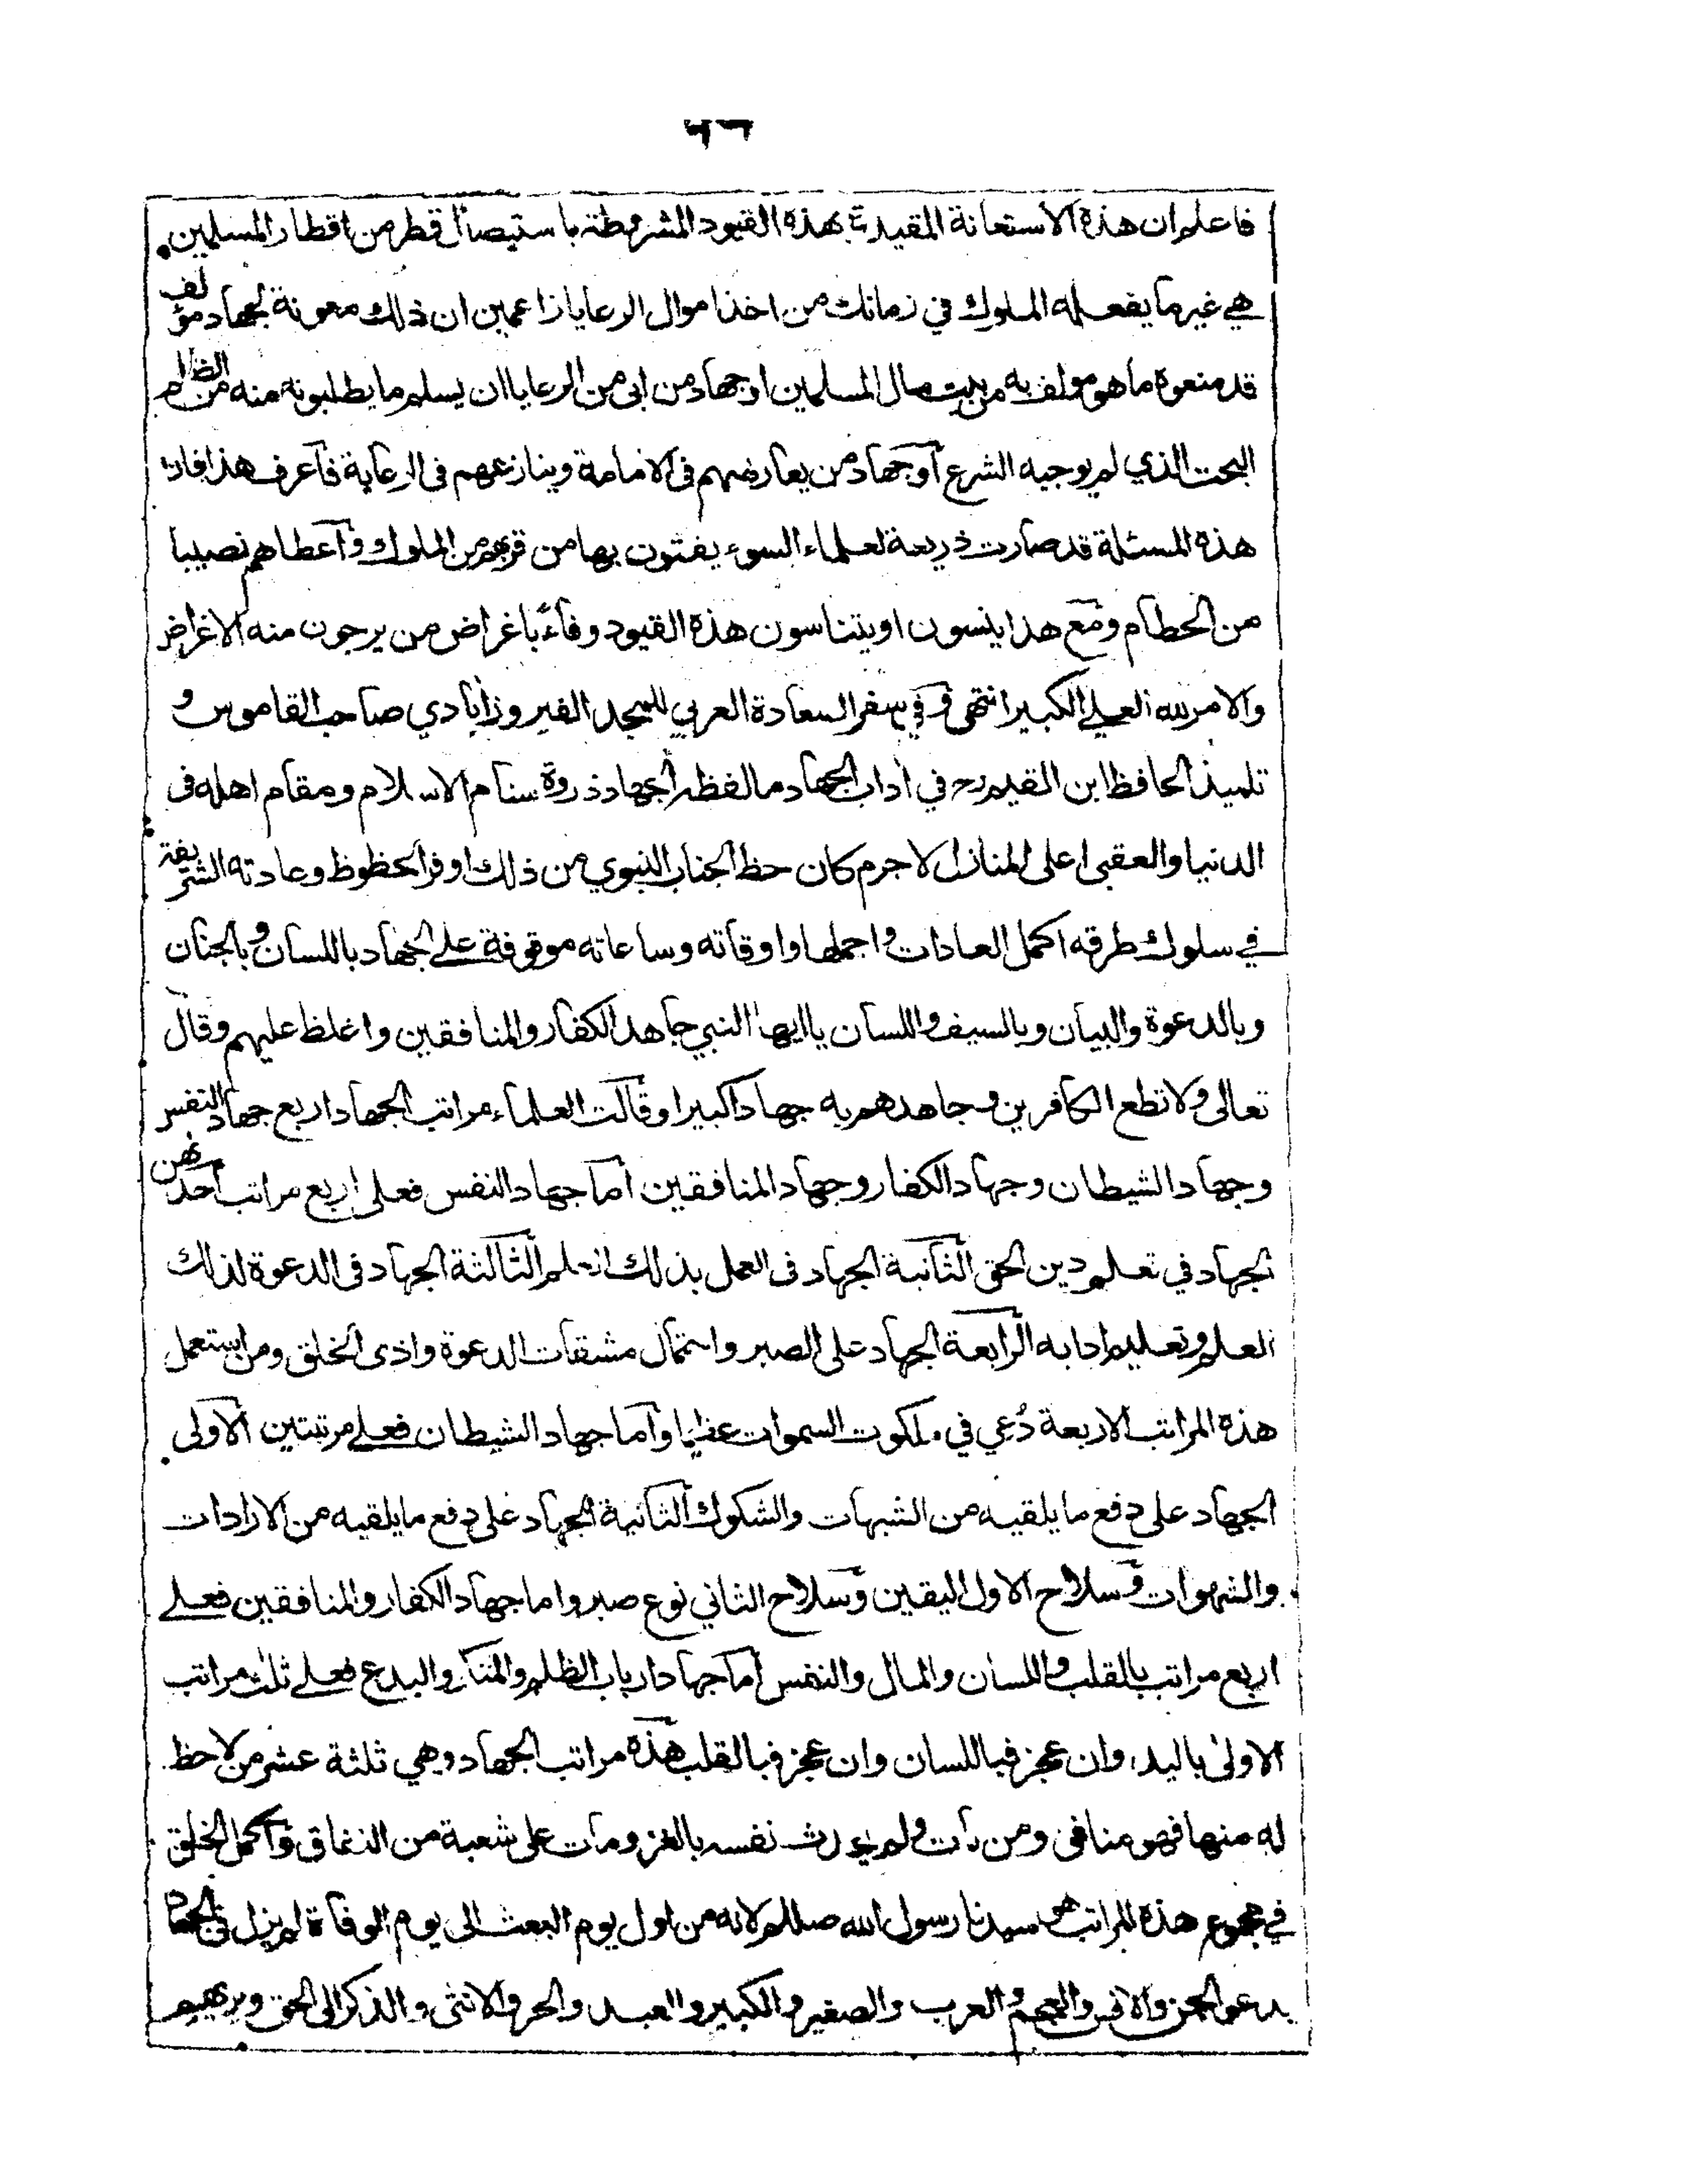 ٦٦
فاعلم ان هذه الاستعانة المقيدة بهذه القيود المشروطة باستيصال قطر من اقطار المسلمين
هي غير ما يفعله الملوك في زمانك من اخذ اموال الرعايا زاعمين ان ذلك معونة لجهاد مؤلف
قد منعوه ما هو مولف به من بيت مال المسلمين او جهاد من ابى من الرعايا ان يسلم ما يطلبونه منه من الظلم
البحت الذي لم يوجبه الشرع او جهاد من يعارضهم فى الامامة وينازعهم فى الرعاية فاعرف هذا فان
هذه المسئلة قد صارت ذريعة لعلماء السوء يفتون بها من قربهم من الملوك واعطاهم نصيبا
من الحطام ومع هذا ينسون او يتناسون هذه القيود وفاءً باغراض من يرجون منه الاغراض
والامر لله العلي الكبير انتهى وفي سفر السعادة العربي للمجد الفيروزابادي صاحب القاموس و
تلميذ الحافظ ابن القيم رح في اداب الجهاد ما لفظه الجهاد ذروة سنام الاسلام ومقام اهله فى
الدنيا والعقبى اعلى المنازل لا جرم كان حظ الجناب النبوي من ذلك اوفر الحظوظ وعادته الشريفة
في سلوك طرقه اكمل العادات واجملها واوقاته وساعاته موقوفة على الجهاد باللسان وبالجنان
وبالدعوة والبيان وبالسيف واللسان ياايها النبي جاهد الكفار والمنافقين واغلظ عليهم وقال
تعالى ولا تطع الكافرين وجاهدهم به جهادا كبيرا وقالت العلماء مراتب الجهاد اربع جهاد النفس
وجهاد الشيطان وجهاد الكفار وجهاد المنافقين اما جهاد النفس فعلى اربع مراتب احدٮهن
الجهاد في تعلم دين الحق الثانية الجهاد فى العمل بذلك العلم الثالثة الجهاد فى الدعوة لذلك
العلم وتعليم ادابه الرابعة الجهاد على الصبر واحتمال مشقات الدعوة واذى الخلق ومن استعمل
هذه المراتب الاربعة دُعي في ملكوت السموات عظيما واما جهاد الشيطان فعلى مرتبتين الاولى
الجهاد على دفع ما يلقيه من الشبهات والشكوك الثانية الجهاد على دفع ما يلقيه من الارادات
والشهوات وسلاح الاول اليقين وسلاح الثاني نوع صبر واما جهاد الكفار والمنافقين فعلى
اربع مراتب بالقلب واللسان والمال والنفس اما جهاد ارباب الظلم والمنكر والبدع فعلى ثلث مراتب
الاولىٰ باليد وان عجز فباللسان وان عجز فبالقلب هذه مراتب الجهاد وهي ثلثة عشر من لا حظ
له منها فهو منافق ومن مات ولم يحدث نفسه بالغزو مات على شعبة من النفاق واكمل الخلق
في مجموع هذه المراتب هو سيدنا رسول الله صللم لانه من اول يوم البعث الى يوم الوفاة لم يزل فى الجهاد
يدعو الجن والانس والعجم والعرب والصغير والكبير والعبد والحر والانثى والذكر الى الحق ويرهبهم